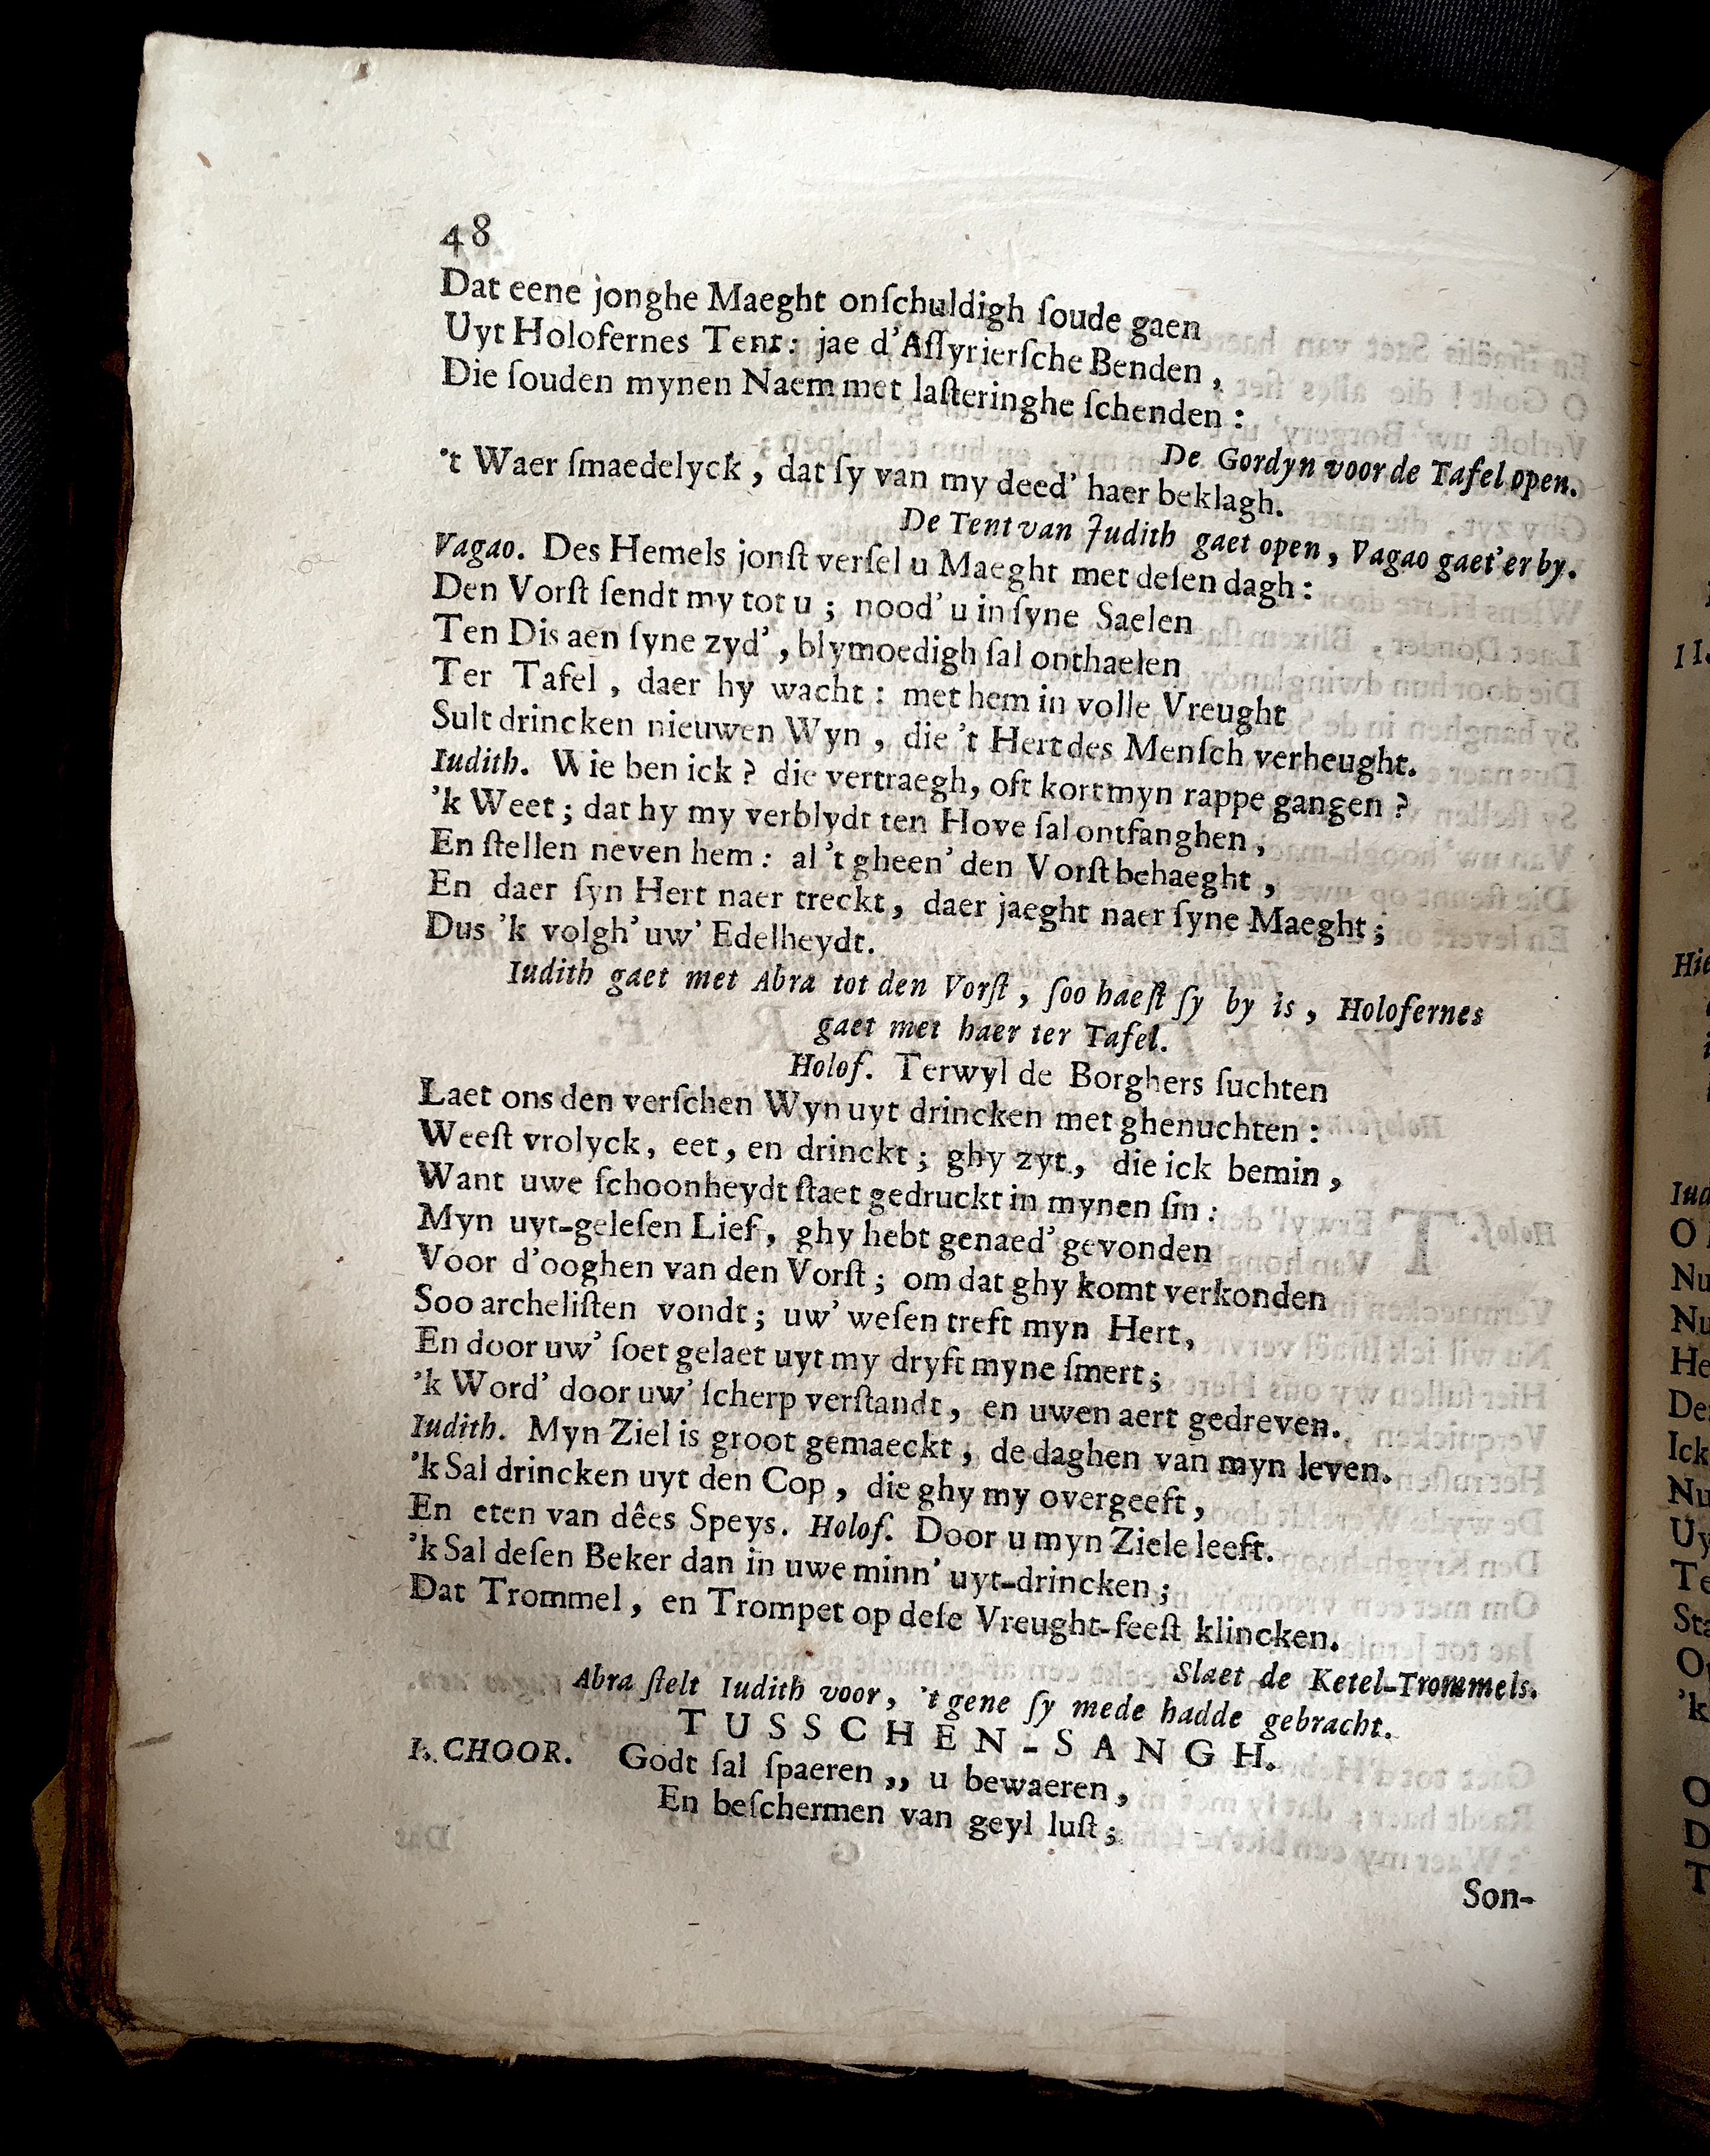 48
Dat eene jonghe Maeght onſchuldigh ſoude gaen
Uyt Holofernes Tent: jae d'Aſſyrierſche Benden,
Die ſouden mynen Naem met laſteringhe ſchenden:
De Gordyn voor de Tafel open.
't Waer ſmaedelyck, dat ſy van my deed' haer beklagh.
De Tent van Judith gaet open, Vagao gaet'er by.
Vagao. Des Hemels jonſt verſel u Maeght met deſen dagh:
Den Vorſt ſendt my tot u; nood' u in ſyne Saelen
Ten Dis aen ſyne zyd', blymoedigh ſal onthaelen
Ter Tafel, daer hy wacht: met hem in volle Vreught
Sult drincken nieuwen Wyn, die 't Hert des Menſch verheught.
Iudith. Wie ben ick? die vertraegh, oft kort myn rappe gangen?
'k Weet; dat hy my verblydt ten Hove ſal ontfanghen,
En ſtellen neven hem: al 't gheen' den Vorſt behaeght,
En daer ſyn Hert naer treckt, daer jaeght naer ſyne Maeght;
Dus 'k volgh' uw' Edelheydt.
Iudith gaet met Abra tot den Vorſt, ſoo haeſt ſy by is, Holofernes
gaet met haer ter Tafel.
Holof. Terwyl de Borghers ſuchten
Laet ons den verſchen Wyn uyt drincken met ghenuchten:
Weeſt vrolyck, eet, en drinckt; ghy zyt, die ick bemin,
Want uwe ſchoonheydt ſtaet gedruckt in mynen ſin:
Myn uyt-geleſen Lief, ghy hebt genaed' gevonden
Voor d'ooghen van den Vorſt; om dat ghy komt verkonden
Soo archeliſten vondt; uw' weſen treft myn Hert,
En door uw' ſoet gelaet uyt my dryft myne ſmert;
'k Word' door uw' ſcherp verſtandt, en uwen aert gedreven.
Iudith. Myn Ziel is groot gemaeckt, de daghen van myn leven.
'k Sal drincken uyt den Cop, die ghy my overgeeft,
En eten van dêes Speys. Holof. Door u myn Ziele leeft.
'k Sal deſen Beker dan in uwe minn' uyt-drincken;
Dat Trommel, en Trompet op deſe Vreught-feeſt klincken.
Slaet de Ketel-Trommels.
Abra ſtelt Iudith voor, 't gene ſy mede hadde gebracht.
TUSSCHEN-SANGH.
I. CHOOR. Godt ſal ſpaeren,, u bewaeren,
En beſchermen van geyl luſt;
Son-